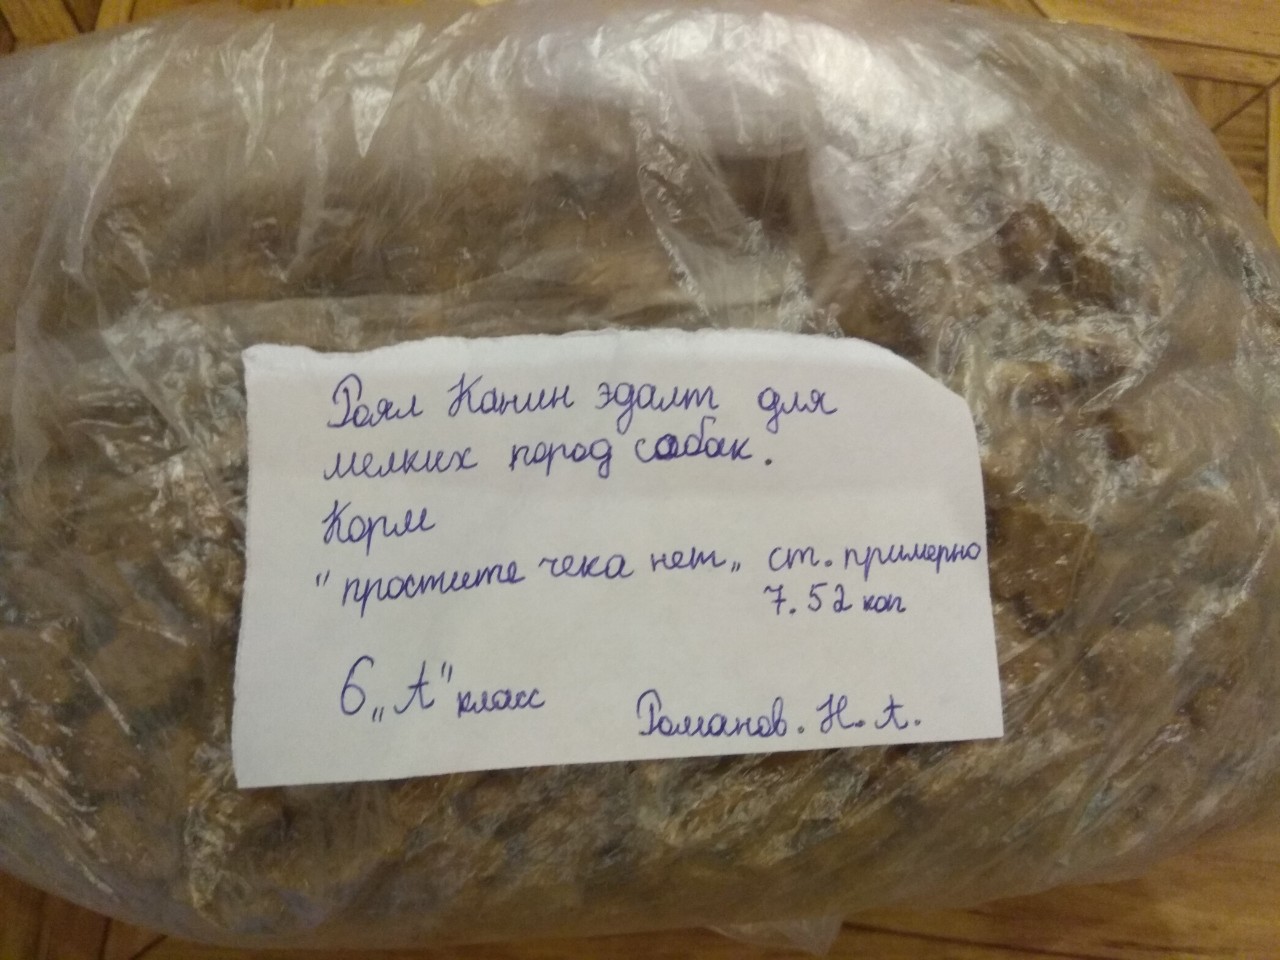 Роял Канин эдалт для
мелких пород собак.
Корм
"простите чека нет„ ст. примерно
7.52 коп
6 „А" класс
Романов. Н. А.